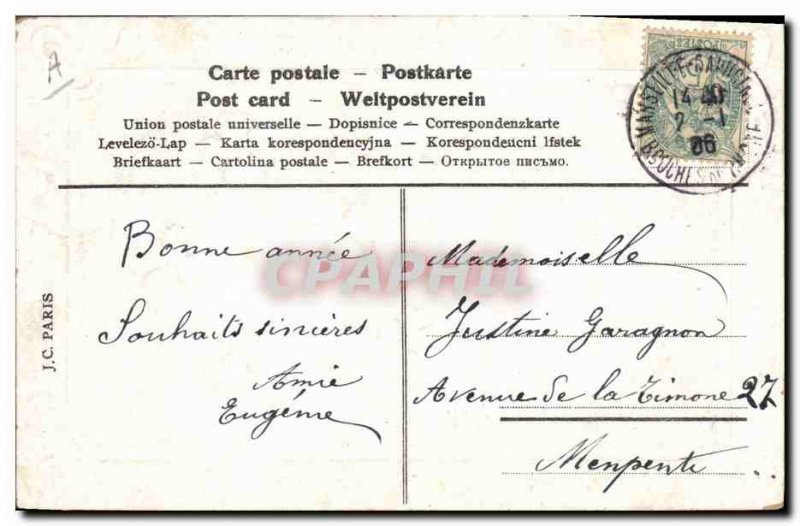 A
Carte postale – Postkarte
Post card – Weltpostverein
Union postale universelle – Dopisnice – Correspondenzkarte
Levelező-Lap – Karta korespondencyjna – Korespondencni lístek
Briefkaart – Cartolina postale – Brefkort – Открытое письмо.
POSTES
14
2 -1
06
BOUCHES DU RHONE
Bonne année
Souhaits sincères
Amie
Eugénie
Mademoiselle
Justine Garagnon
Avenue de la Timone 27
Menpenti
J.C. PARIS
CPAPHIL